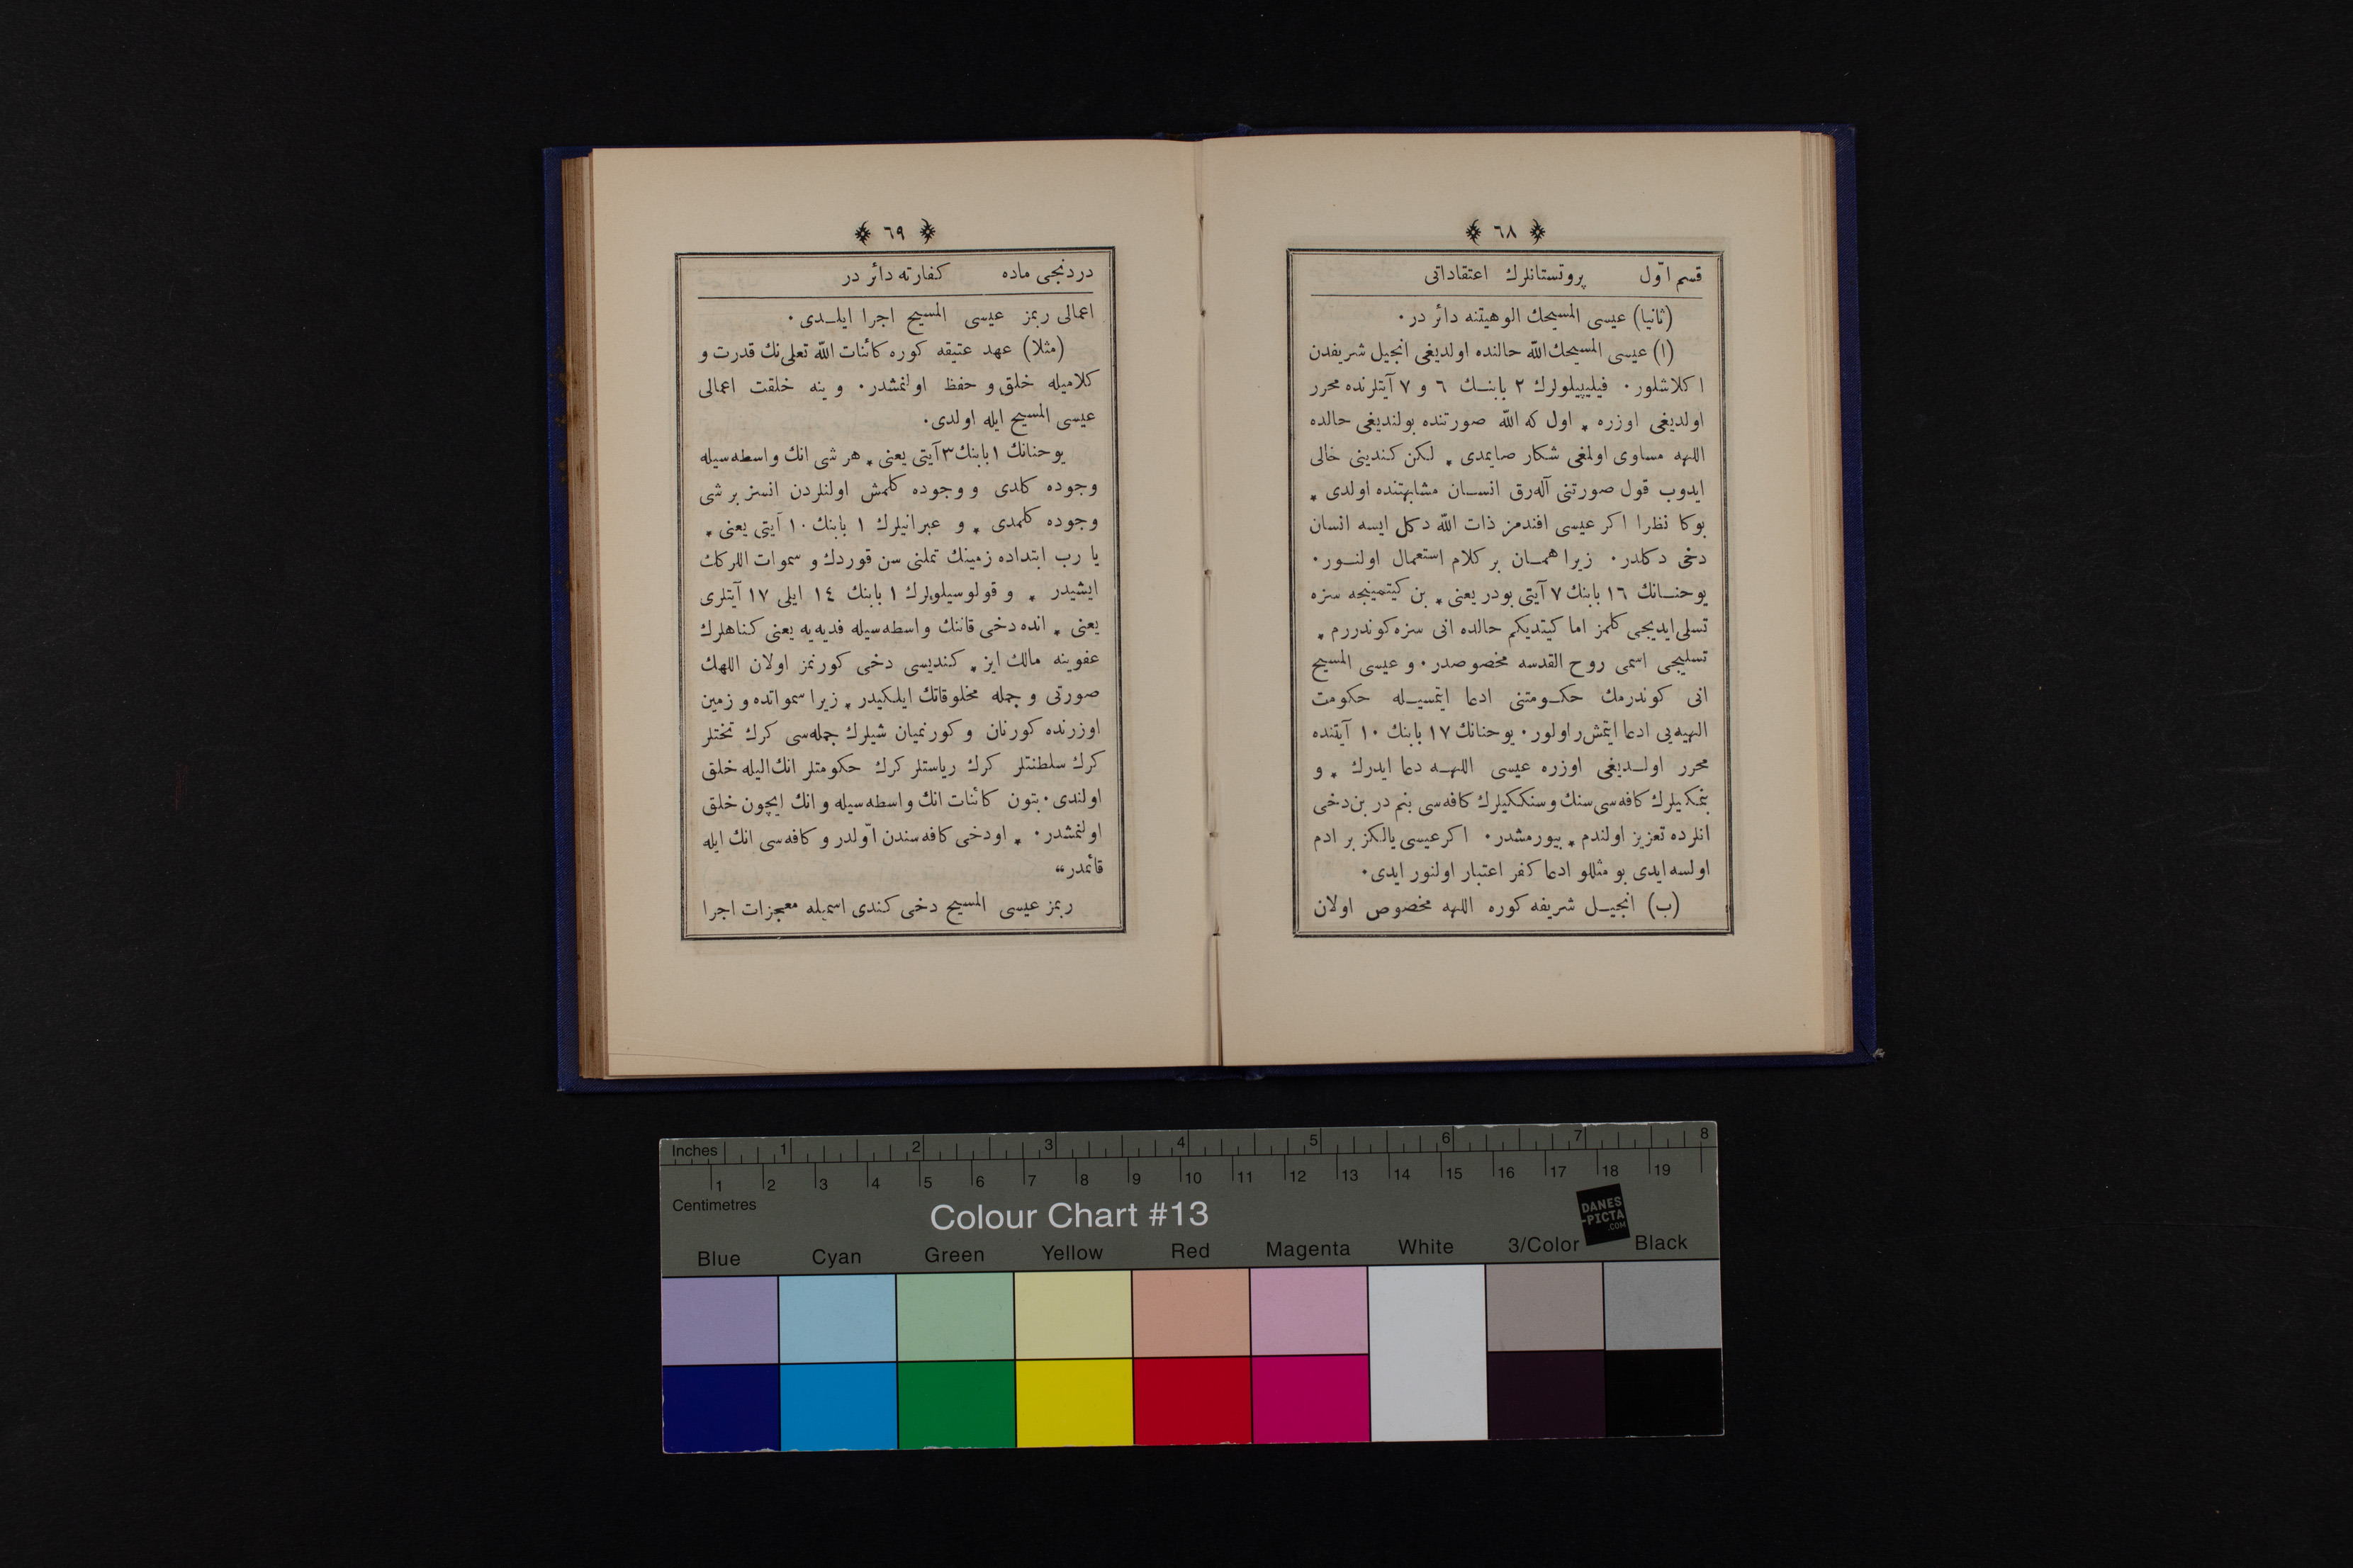 ﴿ ٦٨ ﴾
قسم اوّل پروتستانلرك اعتقاداتی
(ثانیا) عیسی المسیحك الوهیتنه دائر در۰
(ا) عیسی المسیحك الله حالنده اولدیغی انجیل شریفدن
اكلاشلور۰ فیلیپیلولرك ٢ بابنـك ٦ و ٧ آیتلرنده محرر
اولدیغی اوزره ٭ اول كه الله صورتنده بولندیغی حالده
اللهه مساوی اولمغی شكار صایمدی ٭ لكن كندینی خالی
ایدوب قول صورتنی آلەرق انسـان مشابهتنده اولدی ٭
بوكا نظرا اكر عیسی افندمز ذات الله دكل ایسه انسان
دخی دكلدر۰ زیرا همـان بر كلام استعمال اولنـور۰
یوحنـانك ١٦ بابنك ٧ آیتی بودر یعنی ٭ بن كیتمینجه سزه
تسلی ایدیجی كلمز اما كیتدیكم حالده انی سزه كوندررم ٭
تسلیجی اسمی روح القدسه مخصوصدر۰ و عیسی المسیح
انی كوندرمك حكـومتنی ادعا ایتمسیـله حكومت
الهیەیی ادعا ایتمش‌ر اولور۰ یوحنانك ١٧ بابنك ١٠ آیتنده
محرر اولـدیغی اوزره عیسی اللهـه دعا ایدرك ٭ و
بنمكیلرك كافەسی سنك و سنككیلرك كافەسی بنم در بن دخی
انلرده تعزیز اولندم ٭ بیورمشدر۰ اكر عیسی یالكز بر ادم
اولسه ایدی بو مثللو ادعا كفر اعتبار اولنور ایدی۰
(ب) انجیـل شریفه كوره اللهه مخصوص اولان
﴿ ٦٩ ﴾
دردنجی ماده كفارته دائر در
اعمالی ربمز عیسی المسیح اجرا ایلـدی۰
(مثلا) عهد عتیقه كوره كائنات الله تعلی‌نك قدرت و
كلامیله خلق و حفظ اولنمشدر۰ و ینه خلقت اعمالی
عیسی المسیح ایله اولدی۰
یوحنانك ١ بابنك ٣ آیتی یعنی ٭ هر شی انك واسطەسیله
وجوده كلدی و وجوده كلمش اولنلردن انسز بر شی
وجوده كلمدی ٭ و عبرانیلرك ١ بابنك ١٠ آیتی یعنی ٭
یا رب ابتداده زمینك تملنی سن قوردك و سموات اللركك
ایشیدر ٭ و قولوسیلولرك ١ بابنك ١٤ ایلی ١٧ آیتلری
یعنی ٭ انده دخی قاننك واسطەسیله فدیەیه یعنی كناهلرك
عفوینه مالك ایز ٭ كندیسی دخی كورنمز اولان اللهك
صورتی و جمله مخلوقاتك ایلكیدر ٭ زیرا سمواتده و زمین
اوزرنده كورنان و كورنمیان شیلرك جملەسی كرك تختلر
كرك سلطنتلر كرك ریاستلر كرك حكومتلر انك الیله خلق
اولندی۰ بتون كائنات انك واسطەسیله و انك ایچون خلق
اولنمشدر۰ ٭ اودخی كافەسندن اوّلدر و كافەسی انك ایله
قائمدر“
ربمز عیسی المسیح دخی كندی اسمیله معجزات اجرا
Inches 1 2 3 4 5 6 7 8
1 2 3 4 5 6 7 8 9 10 11 12 13 14 15 16 17 18 19
Centimetres
Colour Chart #13
DANES
-PICTA
.COM
Blue Cyan Green Yellow Red Magenta White 3/Color Black